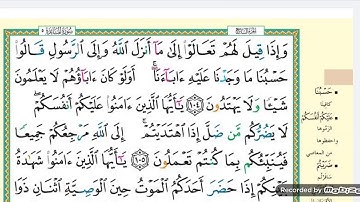 وَإِذَا قِيلَ لَهُمْ تَعَالَوْاْ إِلَىٰ مَآ أَنزَلَ ٱللَّهُ وَإِلَى ٱلرَّسُولِ قَالُواْ
حَسْبُنَا مَا وَجَدْنَا عَلَيْهِ ءَابَآءَنَآۚ أَوَلَوْ كَانَ ءَابَآؤُهُمْ لَا يَعْلَمُونَ
شَيْـًٔا وَلَا يَهْتَدُونَ ١٠٤ يَـٰٓأَيُّهَا ٱلَّذِينَ ءَامَنُواْ عَلَيْكُمْ أَنفُسَكُمْۖ
لَا يَضُرُّكُم مَّن ضَلَّ إِذَا ٱهْتَدَيْتُمْۚ إِلَى ٱللَّهِ مَرْجِعُكُمْ جَمِيعًا
فَيُنَبِّئُكُم بِمَا كُنتُمْ تَعْمَلُونَ ١٠٥ يَـٰٓأَيُّهَا ٱلَّذِينَ ءَامَنُواْ شَهَـٰدَةُ
بَيْنِكُمْ إِذَا حَضَرَ أَحَدَكُمُ ٱلْمَوْتُ حِينَ ٱلْوَصِيَّةِ ٱثْنَانِ ذَوَا
حَسْبُنَا
كافينا
عَلَيْكُمْ أَنفُسَكُمْ
الزموها
واحفظوها
من المعاصي
ضَرَبْتُمْ
سافرتم
Recorded by